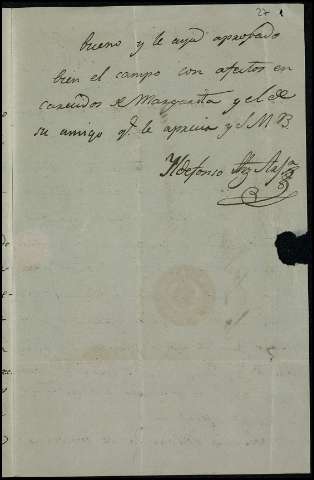 27
bueno y le aya aprobado
bien el campo con afectos en
de Margarita y el de
su amigo q. le aprecia y S M B
Ildefonso